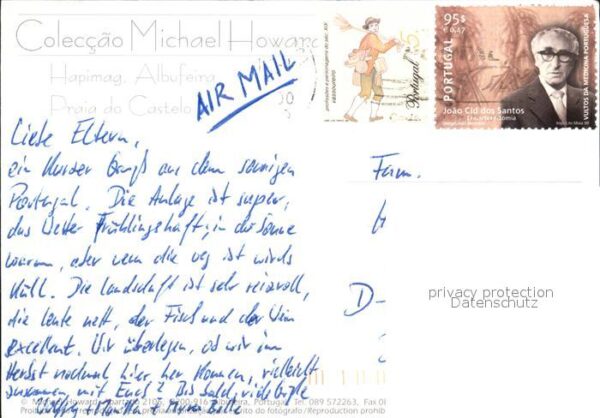 Colecção Michael Howard
Hapimag, Albufeira
Praia do Castelo
AIR MAIL
profissões e personagens do séc. XIX
vassoureiro
Portugal
95$
€ 0,47
PORTUGAL
João Cid dos Santos
Endarterectomia
VULTOS DA MEDICINA PORTUGUESA
Liebe Eltern,
ein kurzer Gruß aus dem sonnigen
Portugal. Die Anlage ist super,
das Wetter Frühlingshaft; in der Sonne
warm, aber wenn die weg ist wirds
kühl. Die Landschaft ist sehr reizvoll,
die Leute nett, der Fisch und der Wein
excellent. Wir überlegen, ob wir im
Herbst nochmal hier her kommen, vielleicht
zusammen mit Euch? Bis bald, viele Grüße
Fam.
D-
privacy protection
Datenschutz
© Michael Howard, apartado 2105, 8200-916 Albufeira, Portugal Tel. 089 572263, Fax 0
do fotógrafo / Reproduction prohib